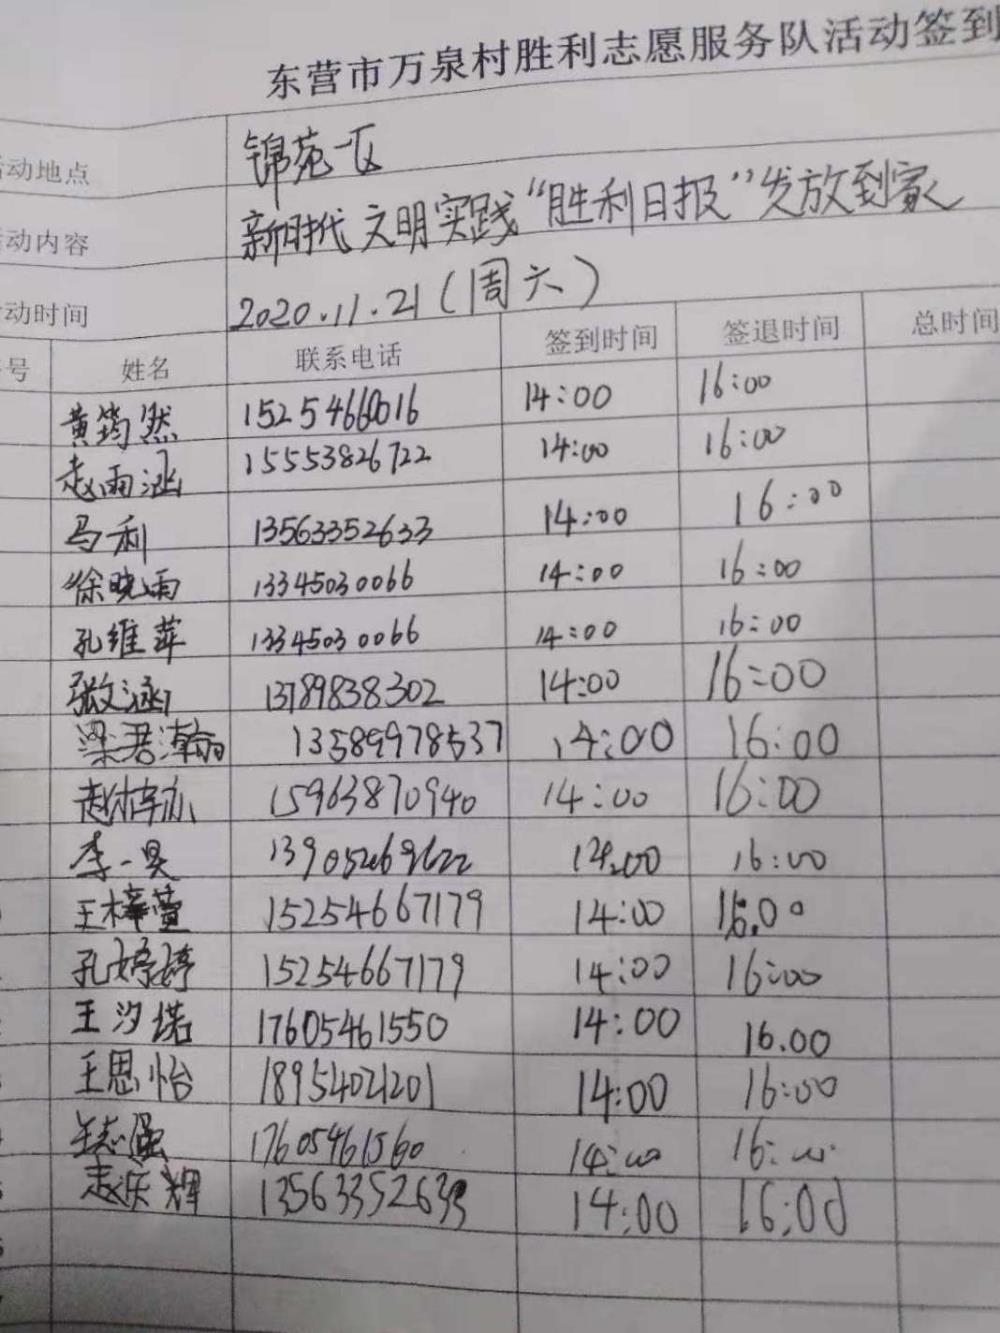 东营市万泉村胜利志愿服务队活动签到
动地点 锦苑一区
动内容 新时代文明实践“胜利日报”发放到家
动时间 2020.11.21(周六)
号 姓名 联系电话 签到时间 签退时间 总时间
黄筠然 15254660016 14:00 16:00
赵雨涵 15553826722 14:00 16:00
马利 13563352633 14:00 16:00
徐晓雨 13345030066 14:00 16:00
孔维萍 13345030066 14:00 16:00
张文涵 13789838302 14:00 16:00
梁君瀚 13589978537 14:00 16:00
赵梓亦 15963870940 14:00 16:00
李一昊 14:00 16:00
王梓萱 15254667179 14:00 16.00
孔婷婷 15254667179 14:00 16:00
王汐偌 17605461550 14:00 16.00
王思怡 18954021201 14:00 16:00
17605461560 14:00 16:00
赵庆辉 13563352633 14:00 16:00